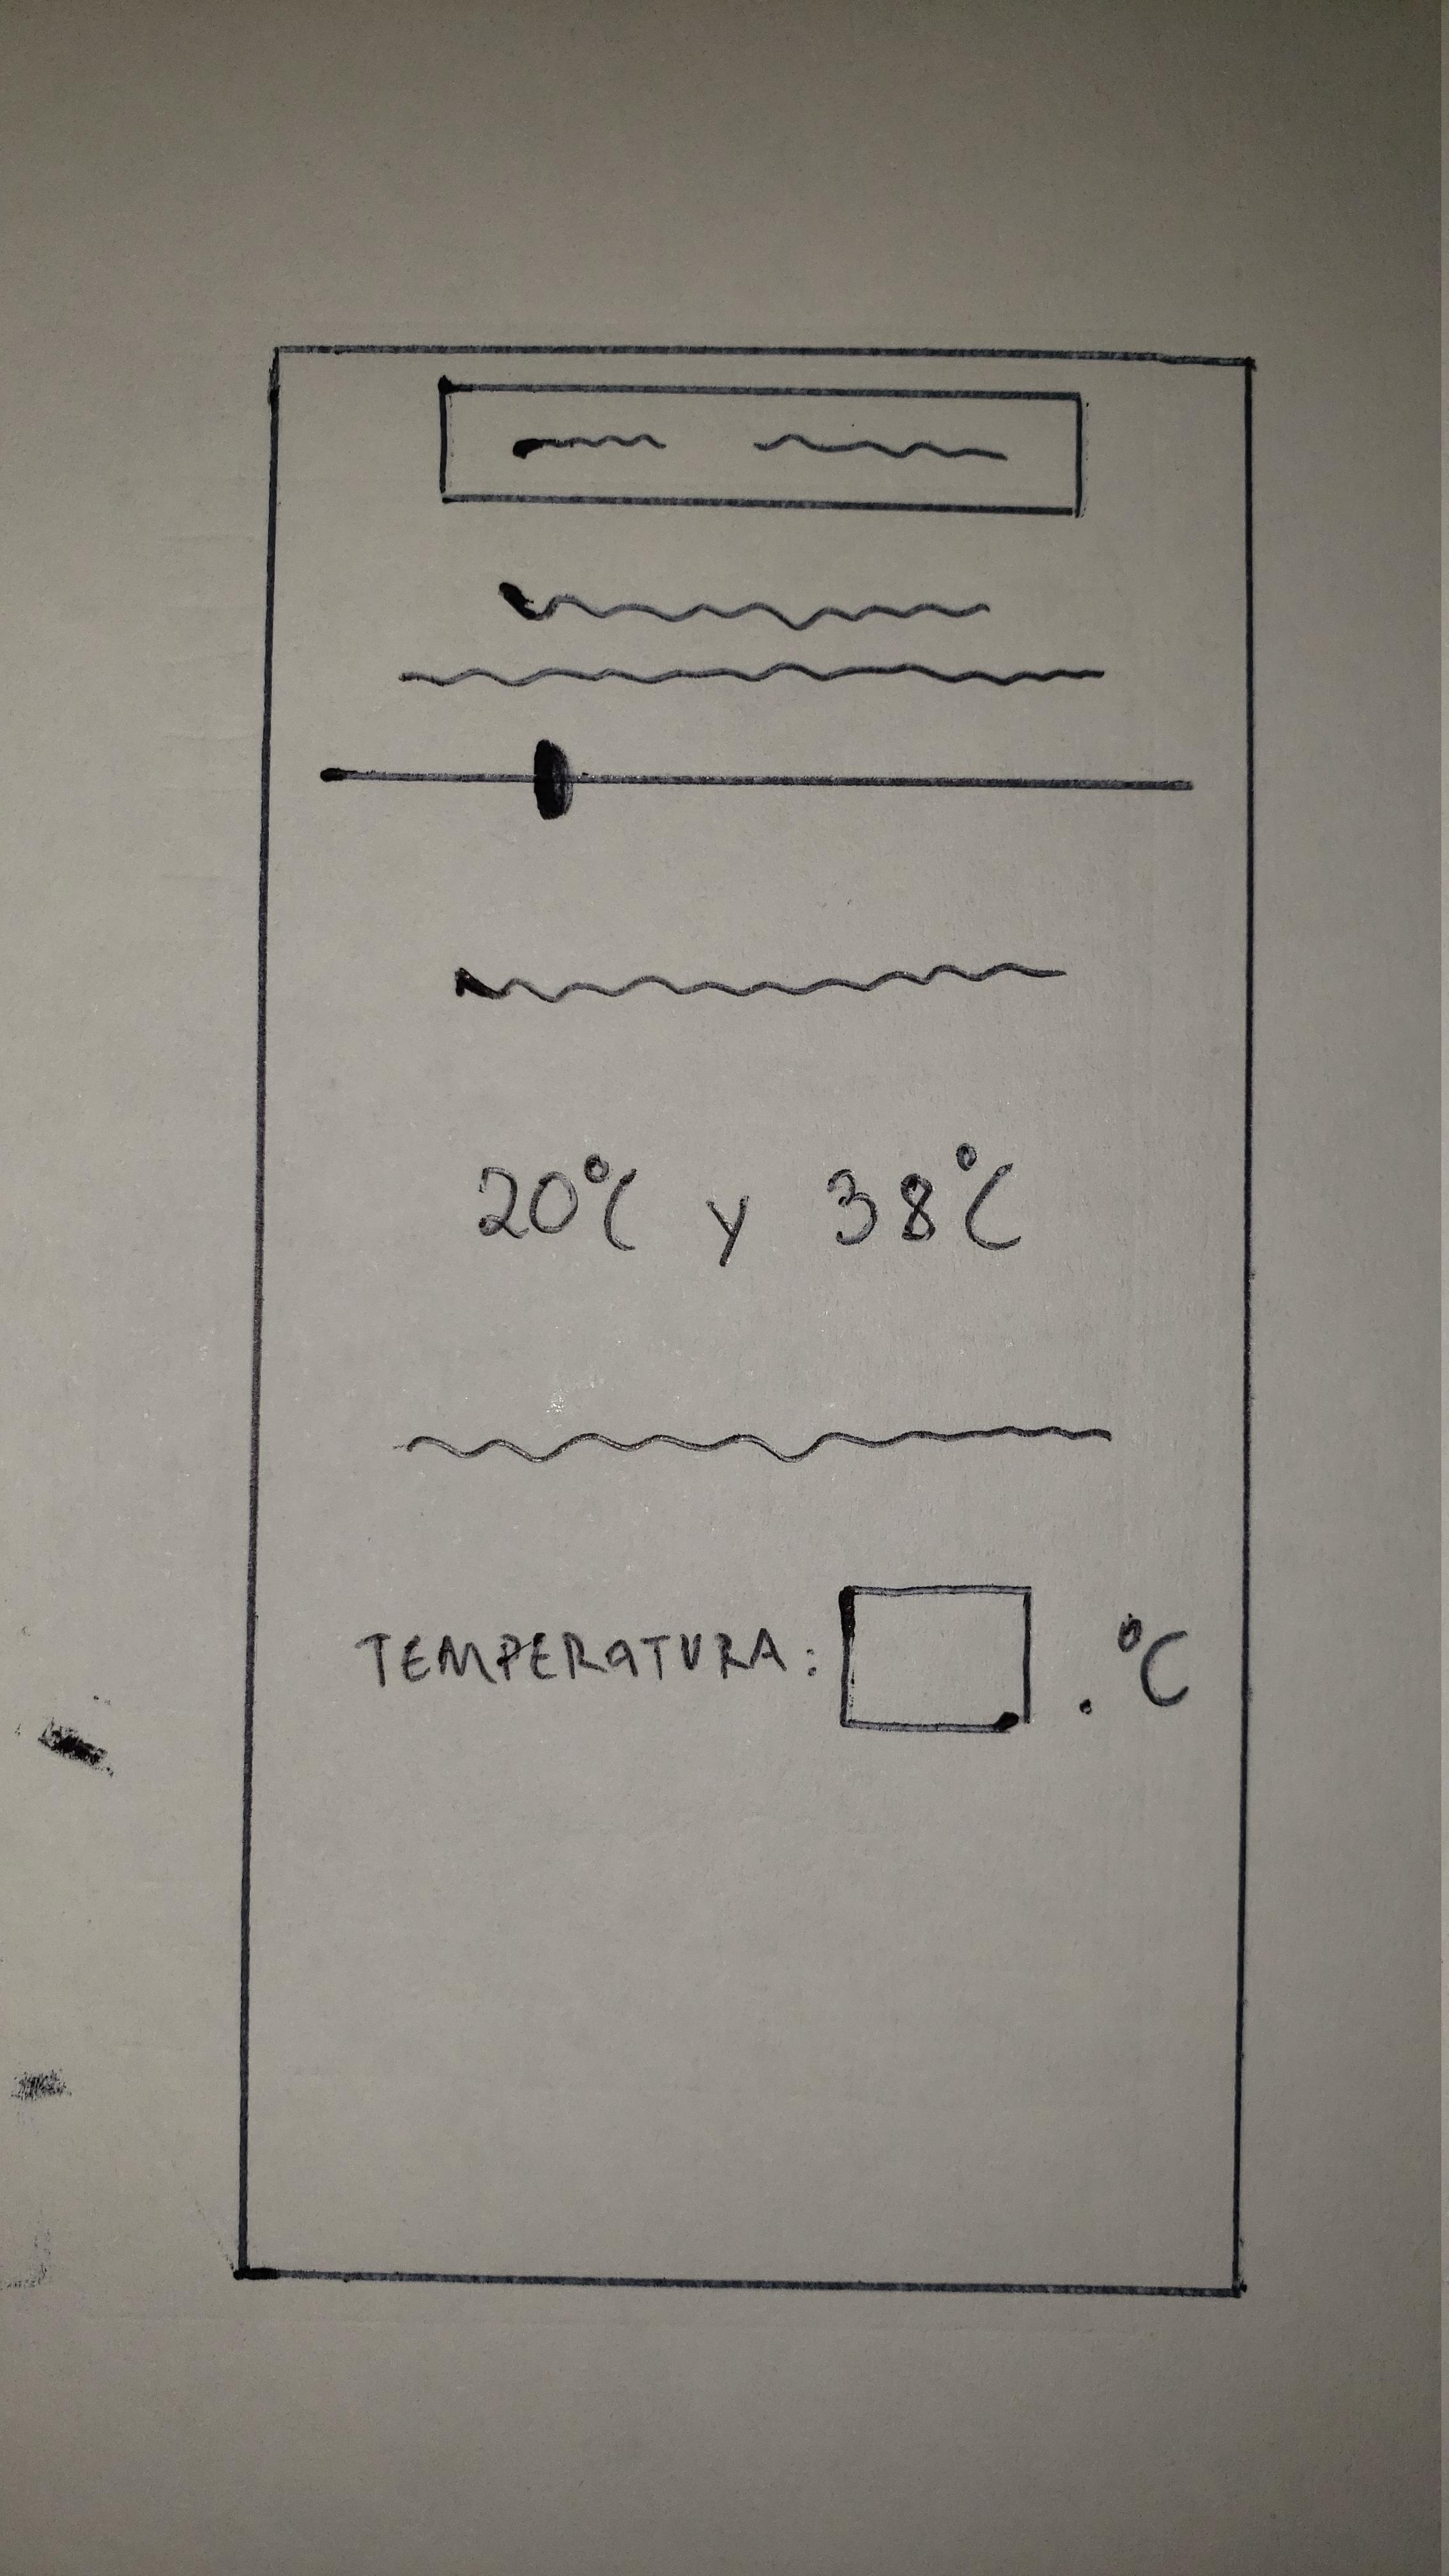 20°C y 38°C
TEMPERATURA: . °C